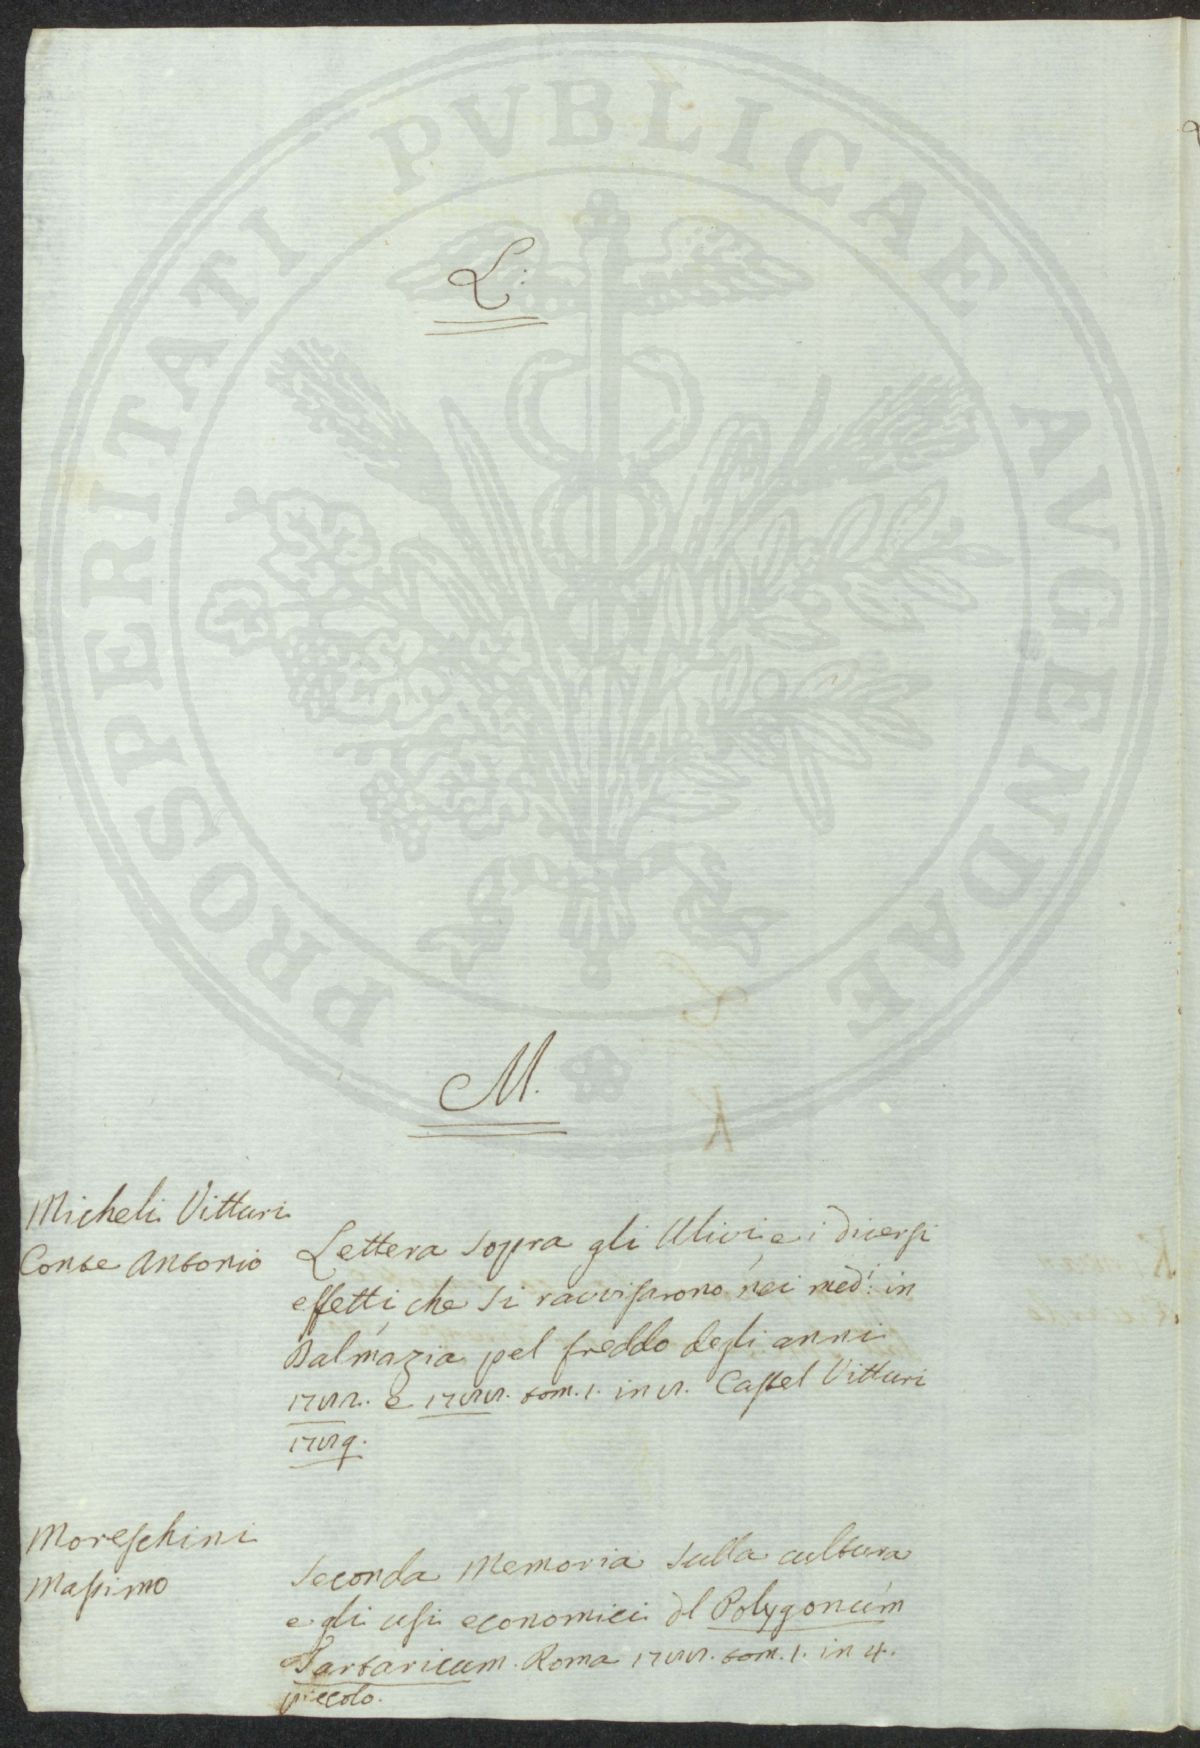 PROSPERITATI PVBLICAE AVGENDAE
L.
M.
Micheli Vitturi
Conte Antonio
Lettera sopra gli Ulivi, e i diversi
effetti, che si ravvisarono nei med.i in
Dalmazia pel freddo degli anni
e tom. 1. in 8. Castel Vitturi
Moreschini
Massimo
Seconda Memoria sulla cultura
e gli usi economici del Polygonum
Tartaricum. Roma tom. 1. in 4.
piccolo.